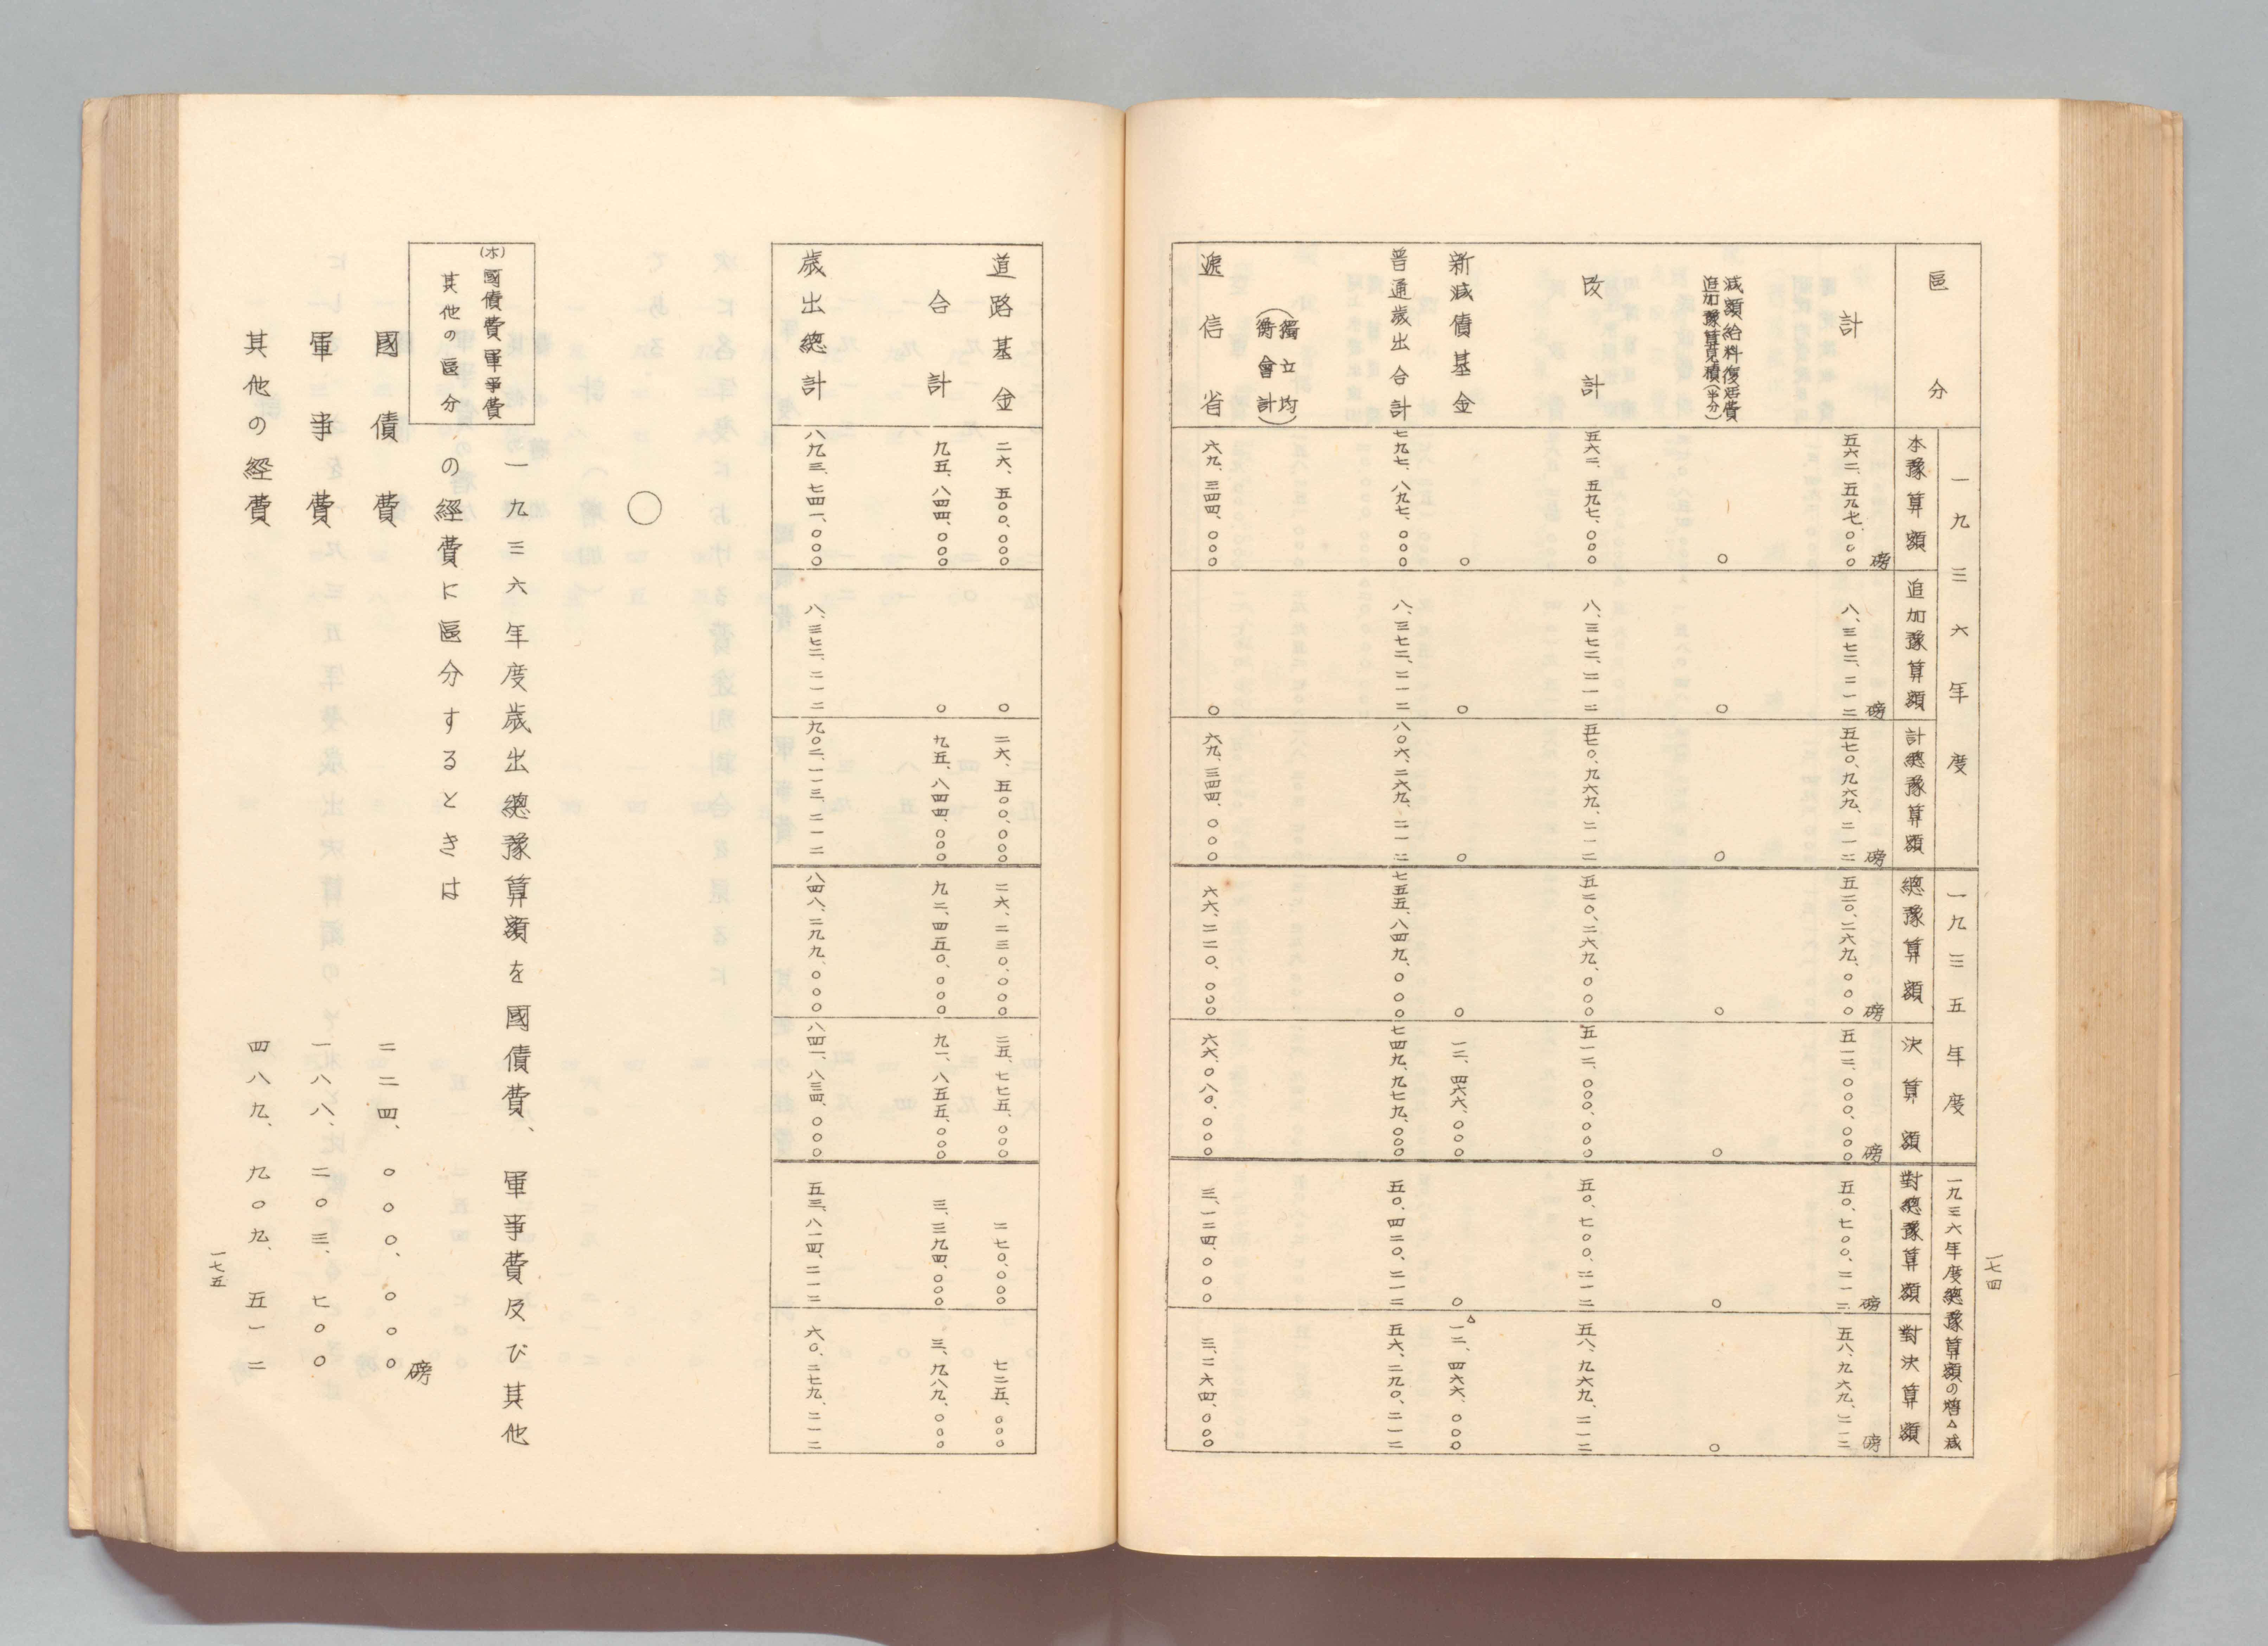 一七四
區分
一九三六年度
一九三五年度
一九三六年度總豫算額の增△減
本豫算額
追加豫算額
計總豫算額
總豫算額
決算額
對總豫算額
對決算額
磅 磅 磅 磅 磅 磅 磅
計 五六二、五九七、〇〇〇 八、三七二、二一二 五七〇、九六九、二一二 五二〇、二六九、〇〇〇 五一二、〇〇〇、〇〇〇 五〇、七〇〇、二一二 五八、九六九、二一二
減額給料復活費
追加豫算見積(半分) 〇 〇 〇 〇 〇 〇 〇
改計 五六二、五九七、〇〇〇 八、三七二、二一二 五七〇、九六九、二一二 五二〇、二六九、〇〇〇 五一二、〇〇〇、〇〇〇 五〇、七〇〇、二一二 五八、九六九、二一二
新減債基金 〇 〇 〇 〇 一二、四六六、〇〇〇 〇 △一二、四六六、〇〇〇
普通歲出合計 七九七、八九七、〇〇〇 八、三七二、二一二 八〇六、二六九、二一二 七五五、八四九、〇〇〇 七四九、九七九、〇〇〇 五〇、四二〇、二一二 五六、二九〇、二一二
(獨立均
衡會計)
遞信省 六九、三四四、〇〇〇 〇 六九、三四四、〇〇〇 六六、二二〇、〇〇〇 六六、〇八〇、〇〇〇 三、一二四、〇〇〇 三、二六四、〇〇〇
道路基金 二六、五〇〇、〇〇〇 〇 二六、五〇〇、〇〇〇 二六、二三〇、〇〇〇 二五、七七五、〇〇〇 二七〇、〇〇〇 七二五、〇〇〇
合計 九五、八四四、〇〇〇 〇 九五、八四四、〇〇〇 九二、四五〇、〇〇〇 九一、八五五、〇〇〇 三、三九四、〇〇〇 三、九八九、〇〇〇
歲出總計 八九三、七四一、〇〇〇 八、三七二、二一二 九〇二、一一三、二一二 八四八、二九九、〇〇〇 八四一、八三四、〇〇〇 五三、八一四、二一二 六〇、二七九、二一二
〇
(ホ)國債費軍事費
其他の區分
一九三六年度歲出總豫算額を國債費、軍事費及び其他
の經費に區分するときは
磅
國債費 二二四、〇〇〇、〇〇〇
軍事費 一八八、二〇三、七〇〇
其他の經費 四八九、九〇九、五一二
一七五